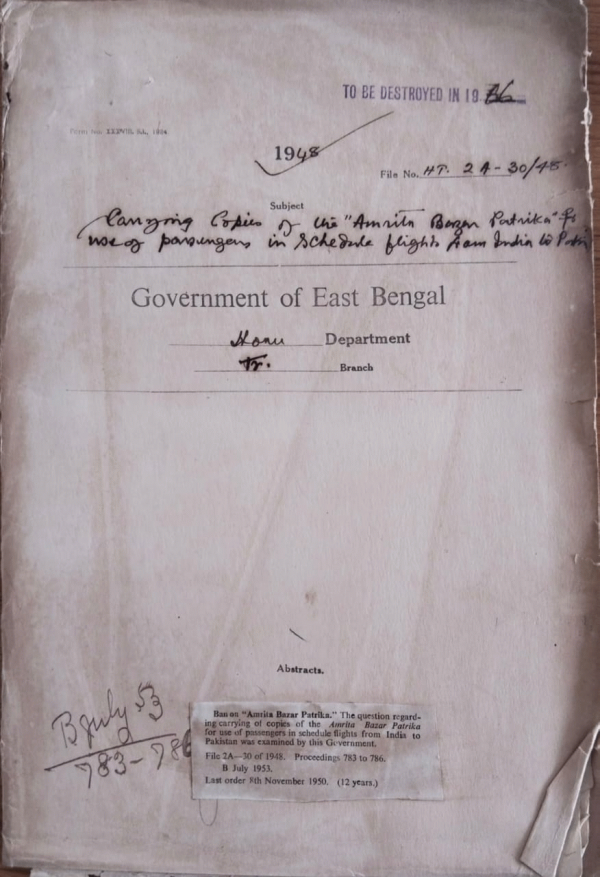 TO BE DESTROYED IN 19
1948
File No. HP. 2A-30/48
Subject
Carrying Copies of the "Amrita Bazar Patrika" for
use of passengers in Schedule flights from India to
Government of East Bengal
Home Department
Branch
Abstracts.
B July 53
783-786
Ban on "Amrita Bazar Patrika." The question regard-
ing carrying of copies of the Amrita Bazar Patrika
for use of passengers in schedule flights from India to
Pakistan was examined by this Government.
File 2A—30 of 1948. Proceedings 783 to 786.
B July 1953.
Last order 8th November 1950. (12 years.)